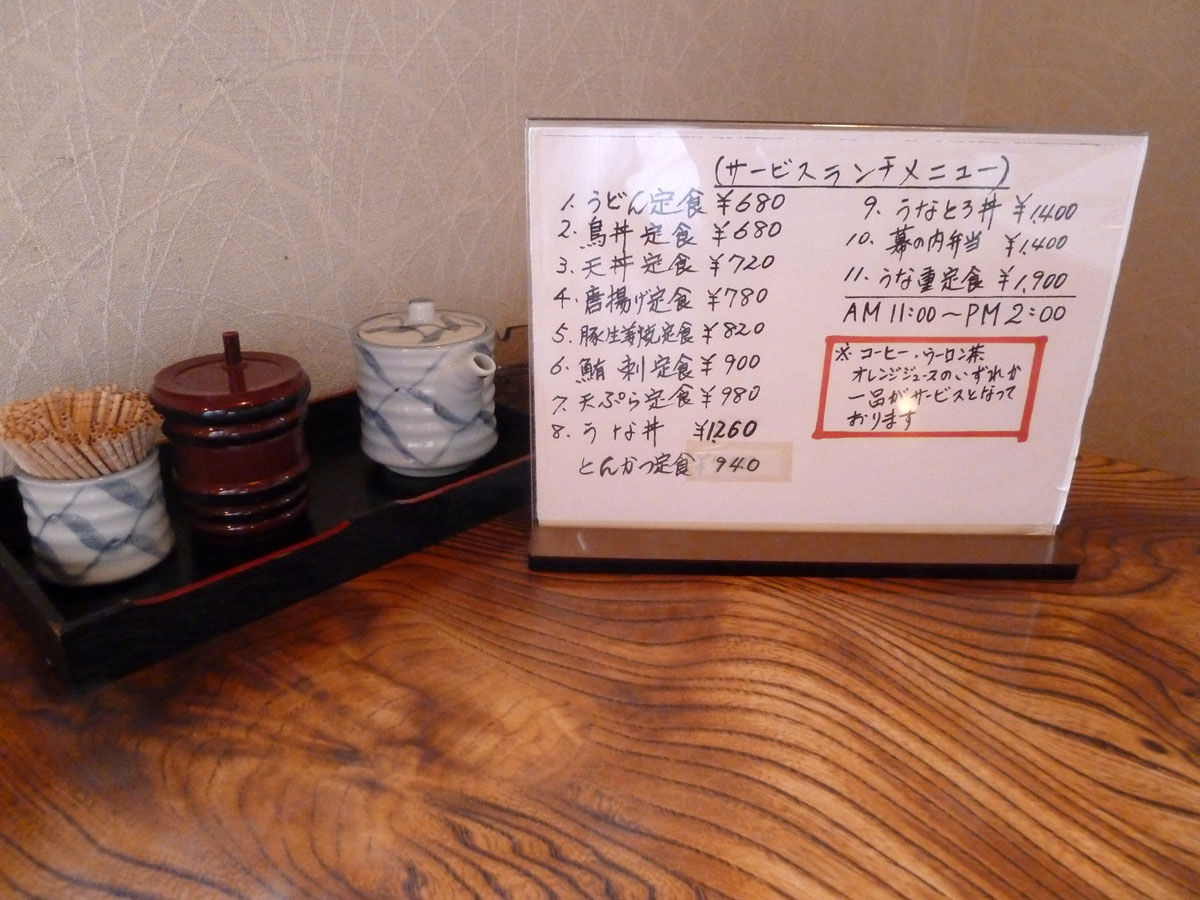 (サービスランチメニュー)
1. うどん定食 ¥680
2. 鳥丼定食 ¥680
3. 天丼定食 ¥720
4. 唐揚げ定食 ¥780
5. 豚生姜焼定食 ¥820
6. 鮪刺定食 ¥900
7. 天ぷら定食 ¥980
8. うな丼 ¥1,260
とんかつ定食 940
9. うなとろ丼 ¥1,400
10. 幕の内弁当 ¥1,400
11. うな重定食 ¥1,900
AM 11:00〜PM 2:00
※コーヒー・ウーロン茶
オレンジジュースのいずれか
一品がサービスとなって
おります